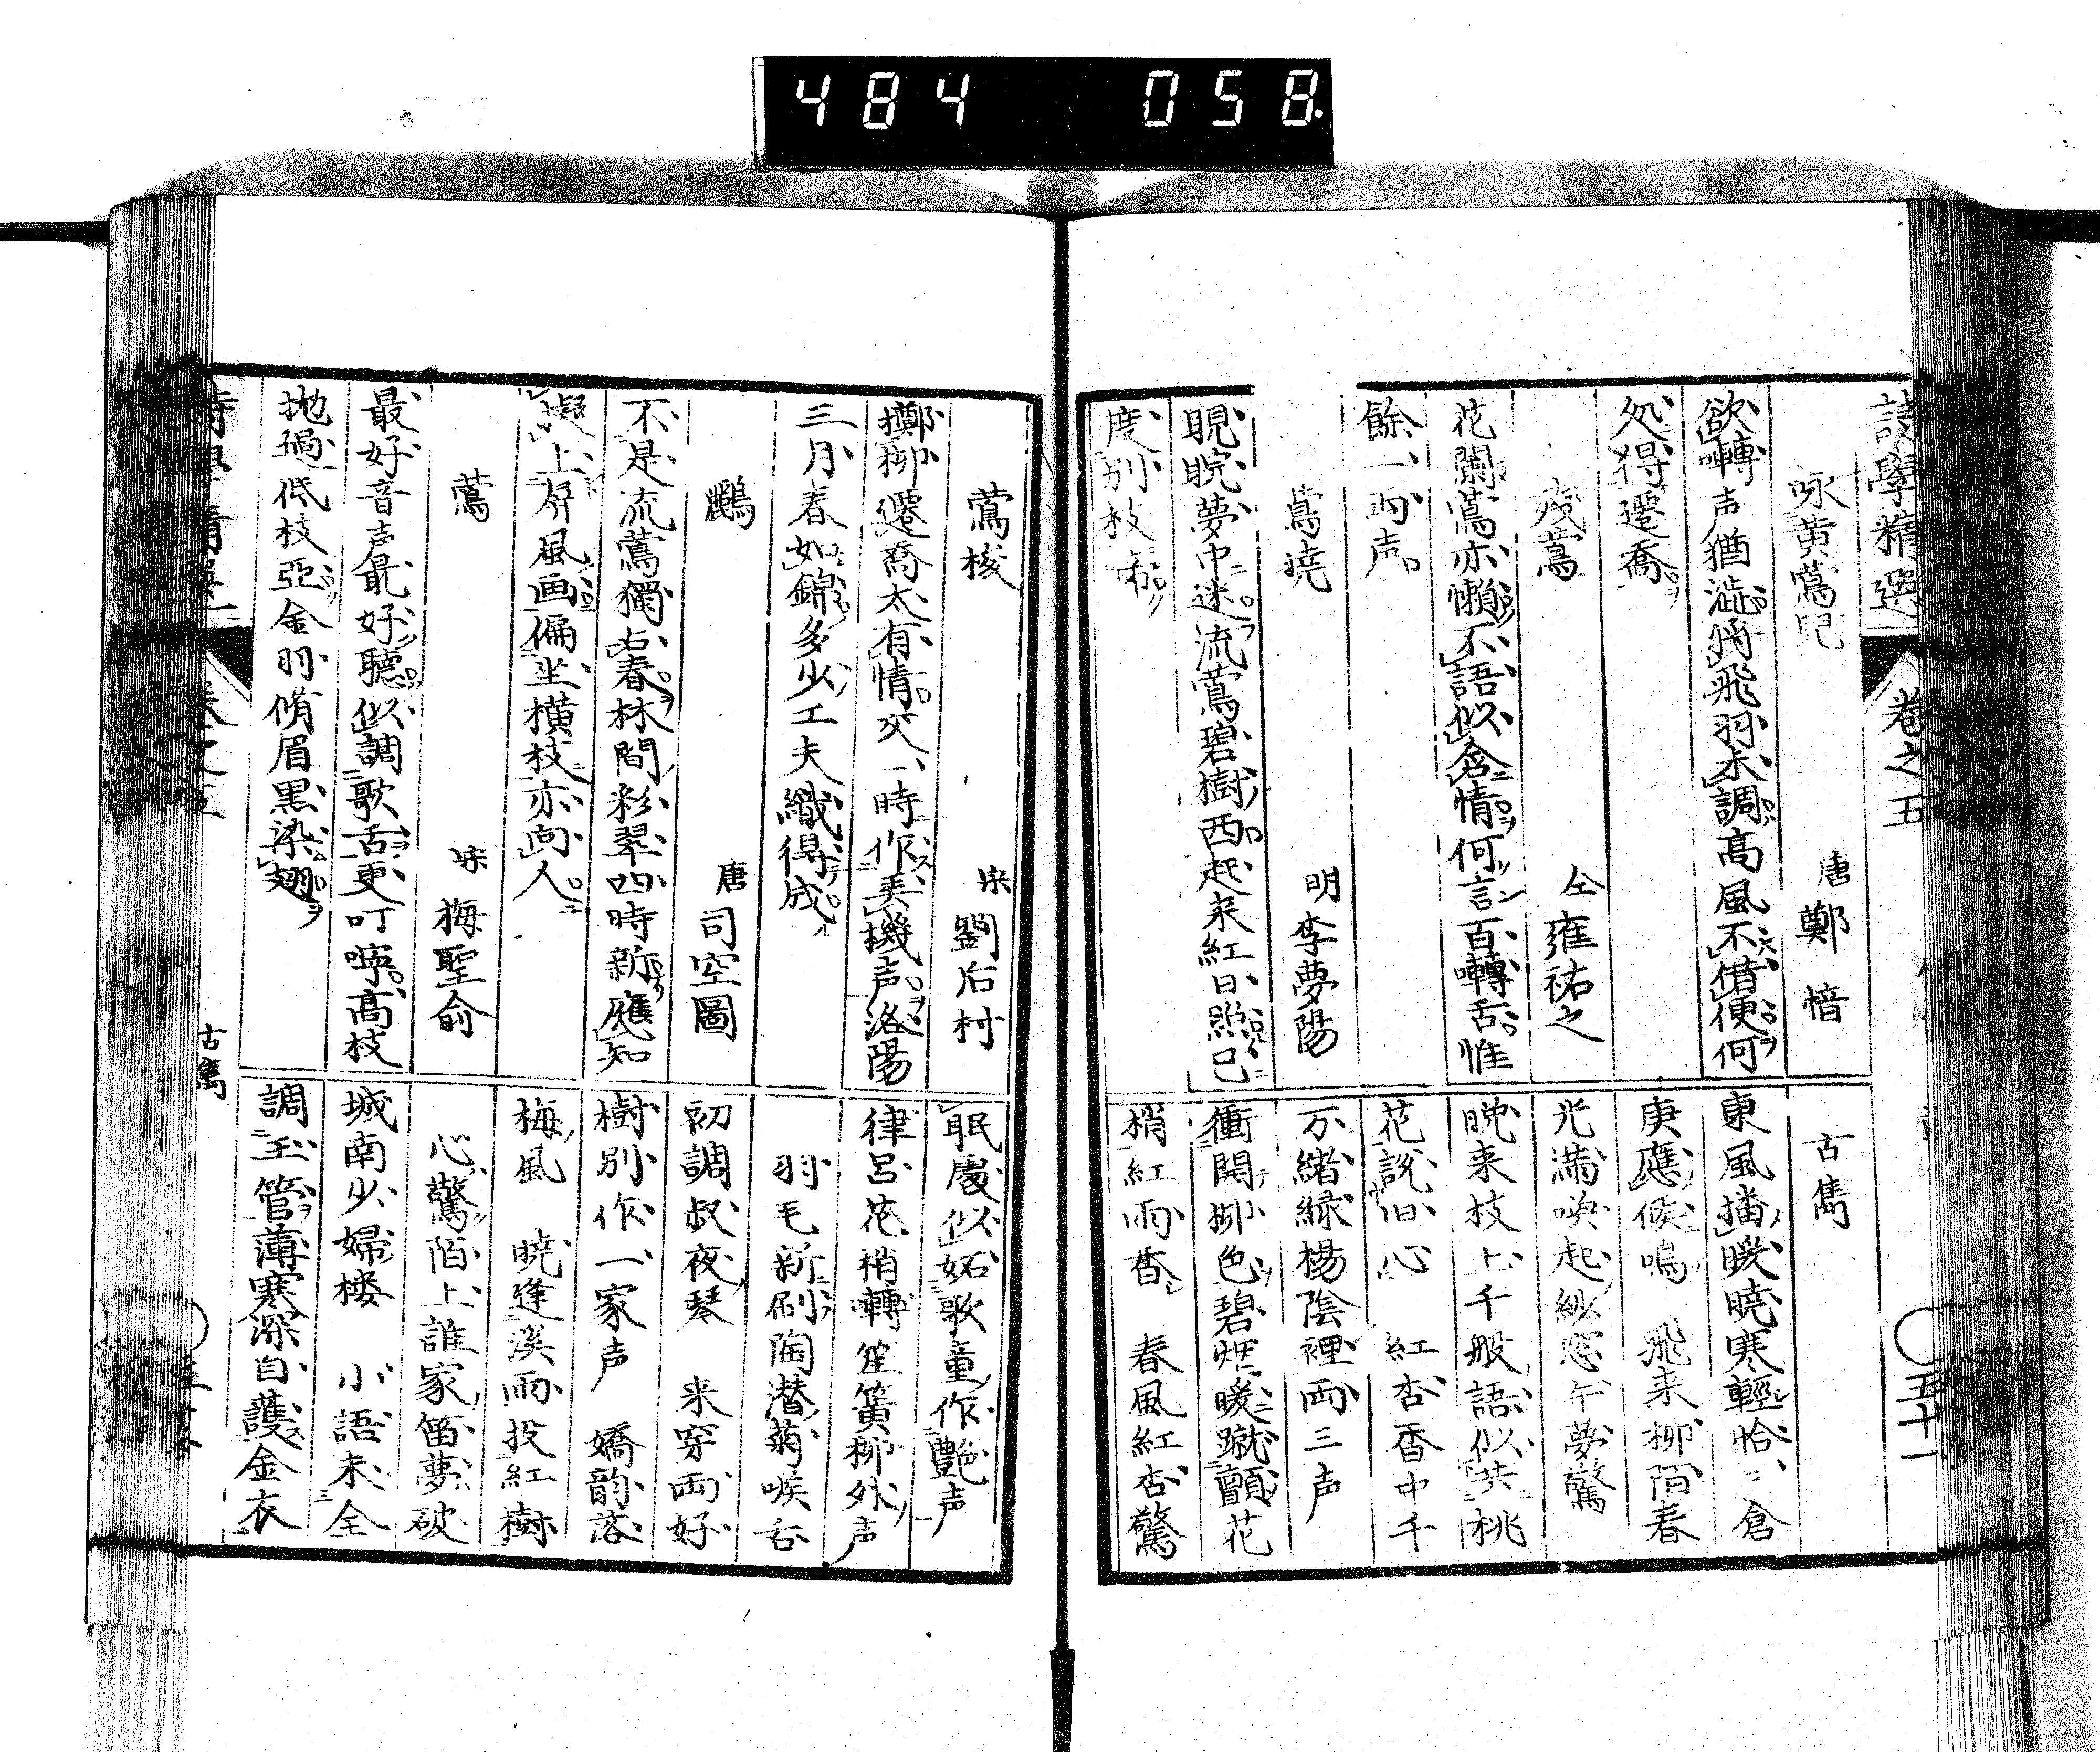 484 058
詩學精選 卷之五 五十一
咏黄鶯児 唐 鄭愔
欲囀声猶澁將飛羽未調高風不借便何
処得遷喬
残鶯 仝 雍祐之
花闌鶯亦懶不語似含情何言百囀舌惟
餘一両声
鶯暁 明 李夢陽
睍睆夢中迷流鶯碧樹西起来紅日照已
度別枝啼
古雋
東風播暖暁寒輕恰〻倉
庚應候鳴 飛来柳陌春
光満喚起紗窓午夢驚
晩来枝上千般語似共桃
花説旧心 紅杏香中千
万緒緑楊陰裡両三声
衝開柳色碧烟暖蹴顫花
梢紅雨香 春風紅杏驚
鶯梭 宋 劉后村
擲柳遷喬太有情交〻時作弄機声洛陽
三月春如錦多少工夫織得成
鸝 唐 司空圖
不是流鶯獨占春林間彩翠四時新應知
擬上屏風画偏坐横枝亦向人
鶯 宋 梅聖俞
最好音声最好聴似調歌舌更叮嚀高枝
抛過低枝亞金羽脩眉黒染翅
眠處似妬歌童作艶声
律呂花梢囀笙簧柳外声
羽毛新刷陶潜菊喉舌
初調叔夜琴 来穿両好
樹別作一家声 嬌韵落
梅風 暁逢溪雨投紅樹
心驚陌上誰家笛夢破
城南少婦楼 小語未全
調玉管薄寒深自護金衣
古雋